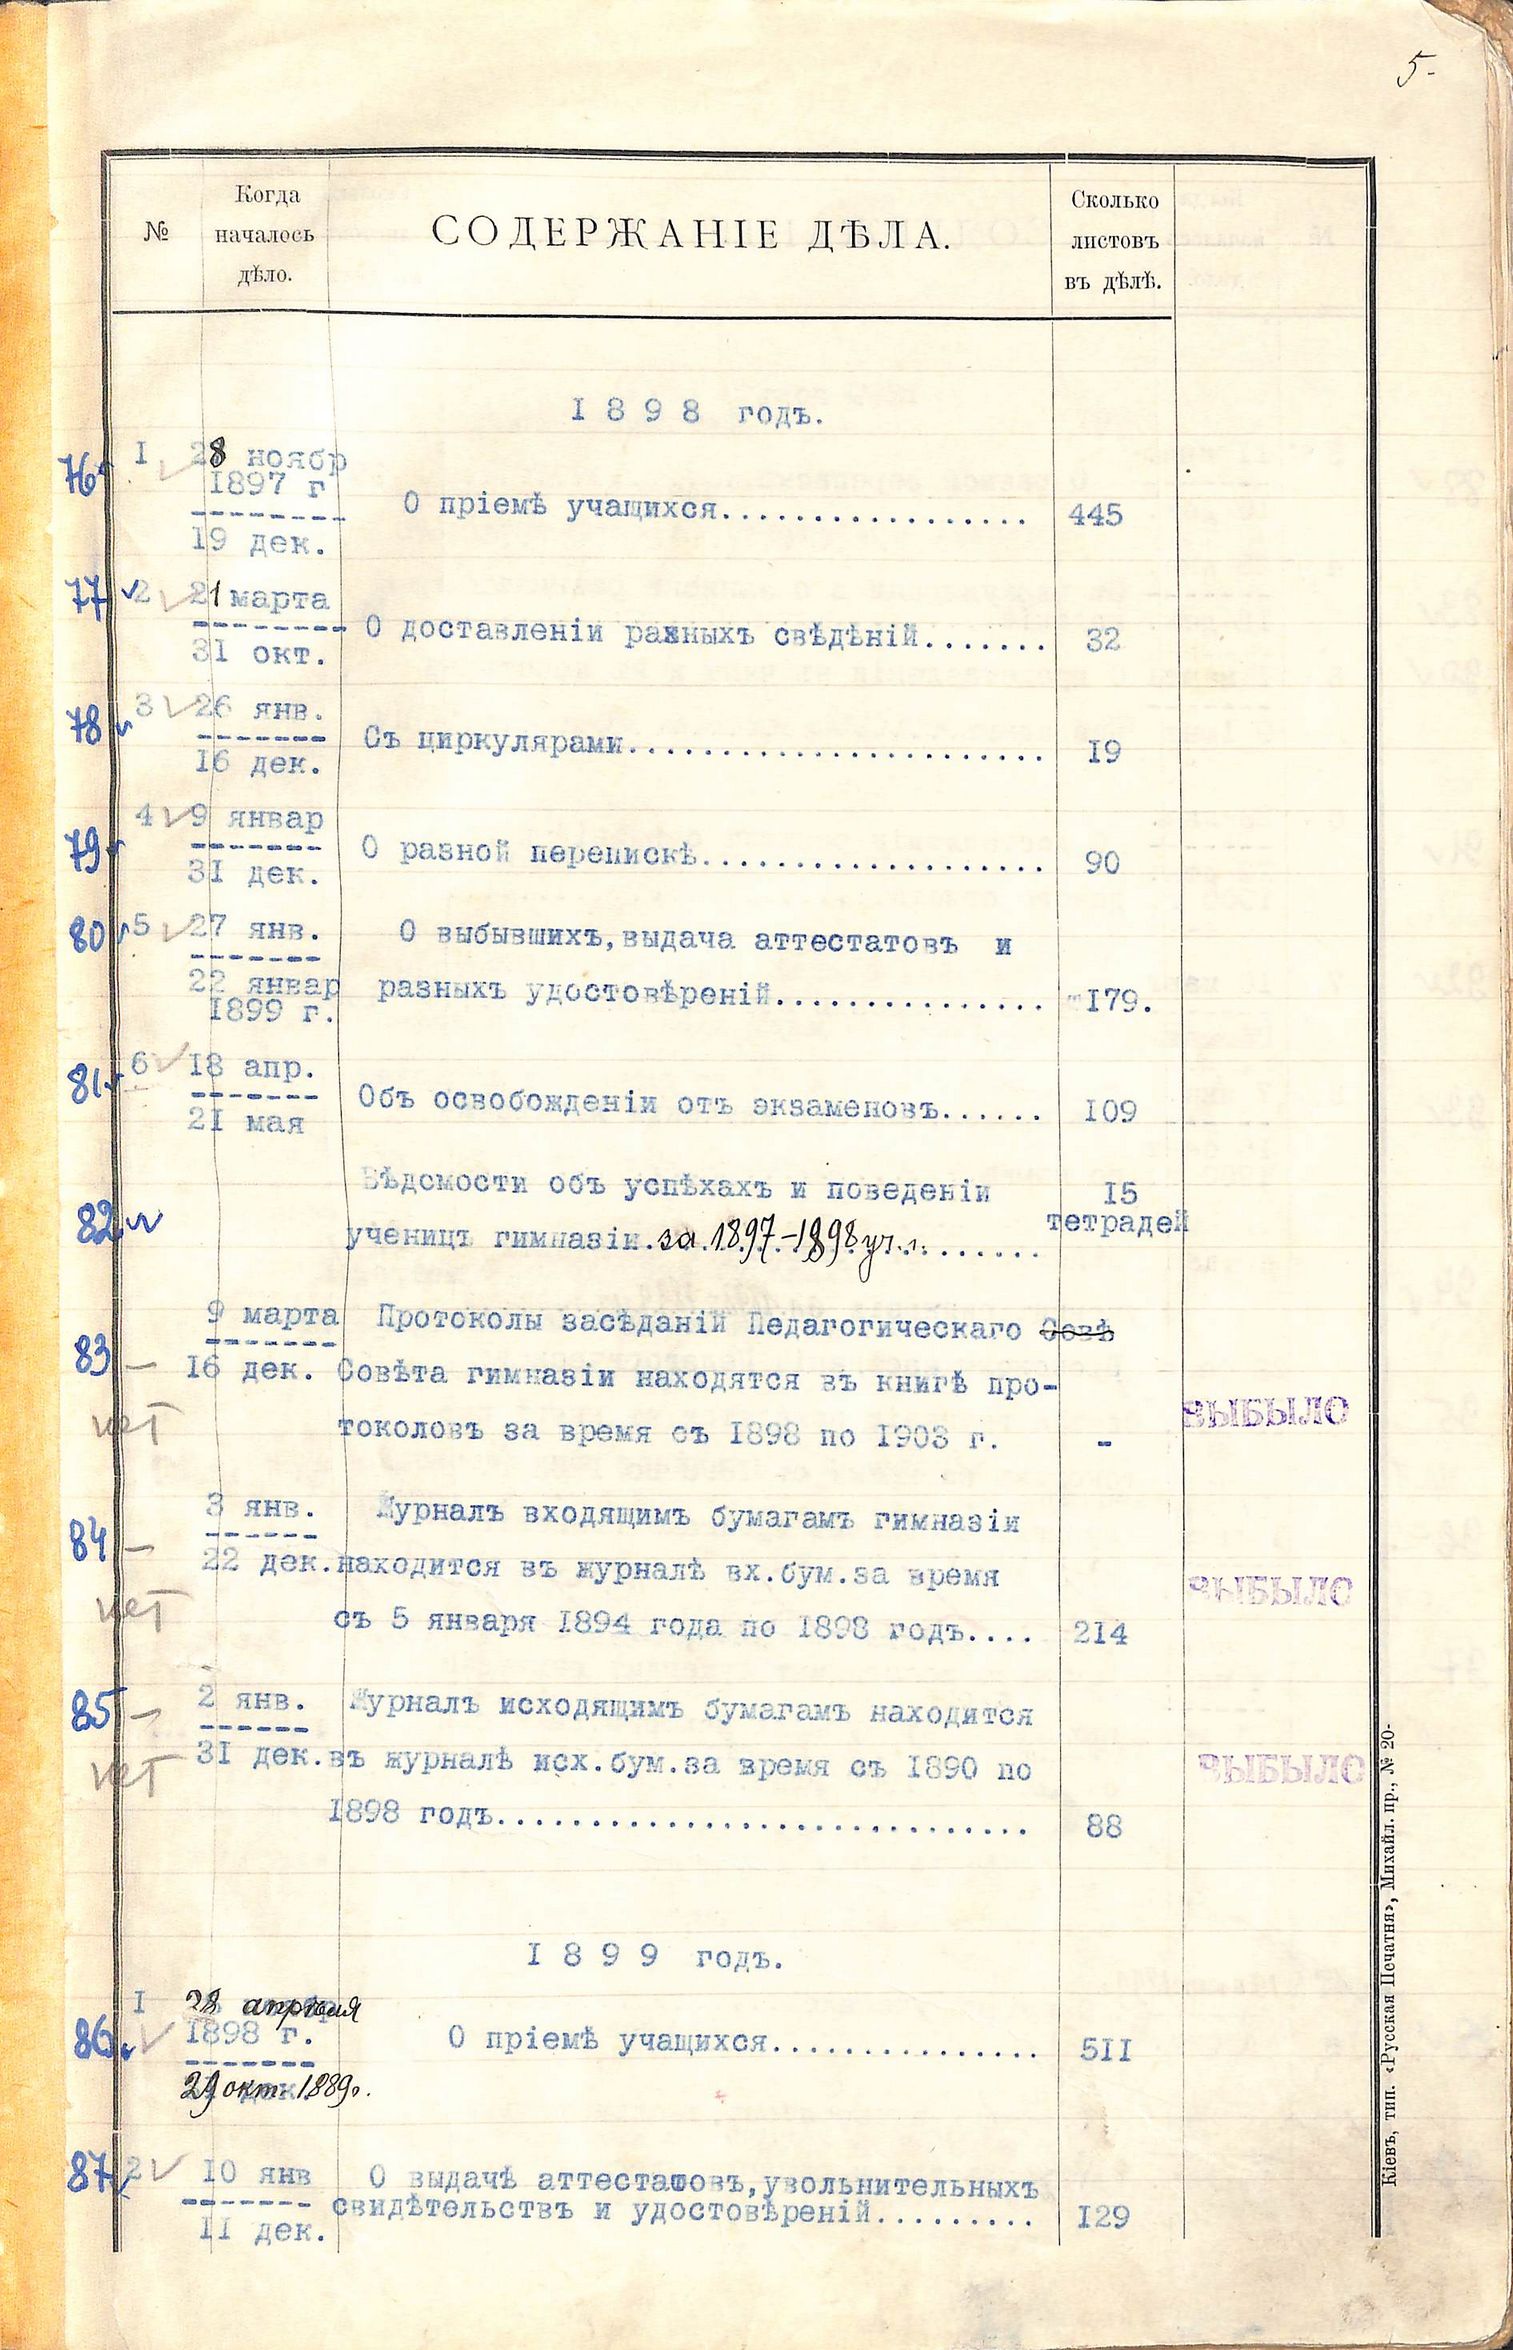 5-
№
Когда
началось
дѣло.
СОДЕРЖАНІЕ ДѢЛА.
Сколько
листовъ
въ дѣлѣ.
1898 годъ.
76 I 28 ноябр
1897 г
О пріемѣ учащихся.................. 445
19 дек.
77 2 21 марта
О доставленіи разныхъ свѣдѣній....... 32
31 окт.
78 3 26 янв.
Съ циркулярами....................... 19
16 дек.
79 4 9 январ
О разной перепискѣ................... 90
31 дек.
80 5 27 янв. О выбывшихъ, выдача аттестатовъ и
22 январ разныхъ удостовѣреній............... 179.
1899 г.
81 6 18 апр.
Объ освобожденіи отъ экзаменовъ...... 109
21 мая
Вѣдомости объ успѣхахъ и поведеніи 15
82 тетрадей
ученицъ гимназіи за 1897-1898 уч.г.
9 марта Протоколы засѣданій Педагогическаго Совѣ
83 — 16 дек. Совѣта гимназіи находятся въ книгѣ про-
нет ВЫБЫЛО
токоловъ за время съ 1898 по 1903 г. -
3 янв. Журналъ входящимъ бумагамъ гимназіи
84 — 22 дек. находится въ журналѣ вх.бум.за время
нет ВЫБЫЛО
съ 5 января 1894 года по 1898 годъ.... 214
85 — 2 янв. Журналъ исходящимъ бумагамъ находится
31 дек. въ журналѣ исх.бум.за время съ 1890 по
нет ВЫБЫЛО
1898 годъ............................. 88
1899 годъ.
I 28 апрѣля
86 1898 г. О пріемѣ учащихся............... 511
29 окт. 1889г.
87 2 10 янв О выдачѣ аттестатовъ, увольнительныхъ
свидѣтельствъ и удостовѣреній......... 129
11 дек.
Кіевъ, тип. «Русская Печатня», Михайл. пр., № 20-